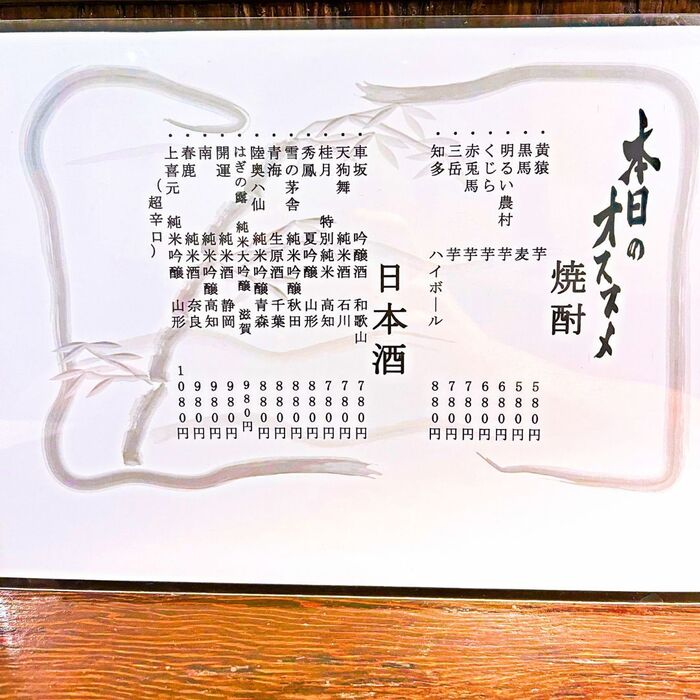 本日のオススメ
焼酎
・黄猿 芋 580円
・黒馬 麦 580円
・明るい農村 芋 680円
・くじら 芋 680円
・赤兎馬 芋 780円
・三岳 芋 780円
・知多 ハイボール 880円
日本酒
・車坂 吟醸酒 和歌山 780円
・天狗舞 純米酒 石川 780円
・桂月 特別純米 高知 780円
・秀鳳 夏吟醸 山形 880円
・雪の茅舎 純米吟醸 秋田 880円
・青海 生原酒 千葉 880円
・陸奥八仙 純米吟醸 青森 880円
・はぎの露 純米大吟醸 滋賀 980円
・開運 純米酒 静岡 980円
・南 純米吟醸 高知 980円
・春鹿 純米酒 奈良 980円
・上喜元 純米吟醸 山形 1080円
（超辛口）